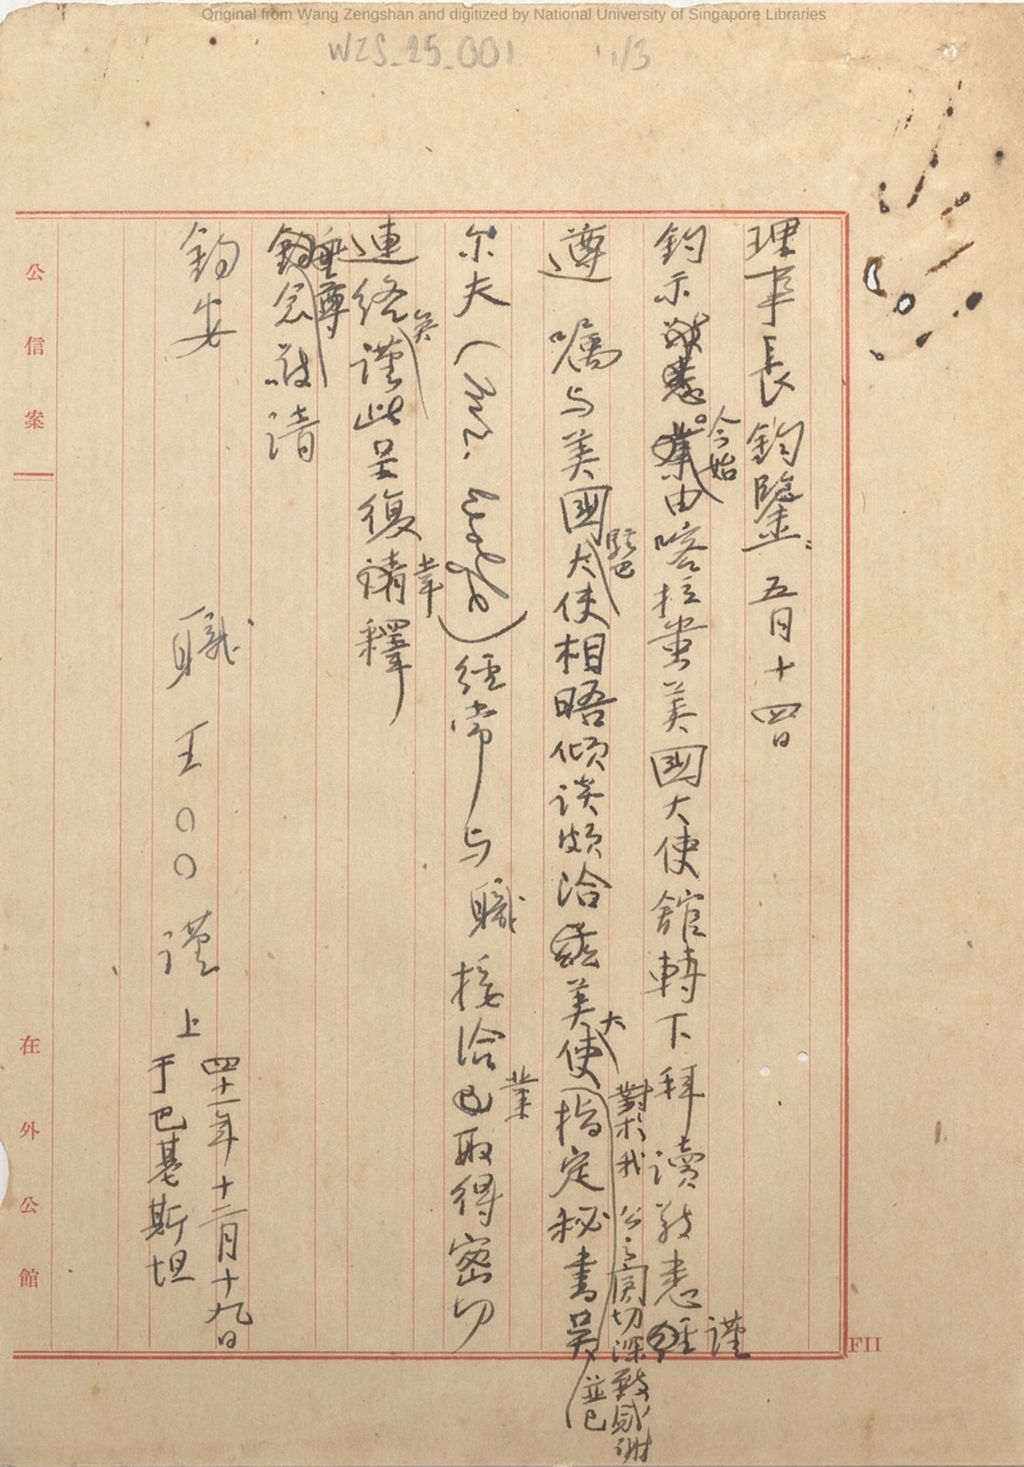 Original from Wang Zengshan and digitized by National University of Singapore Libraries
WZS_25_001 1/3
理事長鈞鑒：五月十四日
鈞示敬悉。業今始由喀拉蚩美國大使館轉下拜讀敬悉經謹
遵 囑与美國大使暨巴相晤傾談頗洽美大使對於我公之関切深致感謝並已指定秘書吴
尔夫（Mr. Wolfe）經常与職接洽已業取得密切
連絡矣謹此呈復請幸釋
垂尊鈞念敬請
鈞安
職 王〇〇 謹上
四十一年十二月十九日
于巴基斯坦
公信案
在外公館
FII